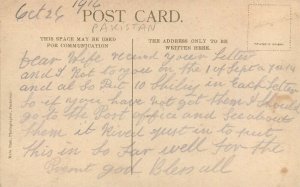 Oct 26 1916
POST CARD.
PAKISTAN
THIS SPACE MAY BE USED FOR COMMUNICATION
THE ADDRESS ONLY TO BE WRITTEN HERE.
Dear Wife recivd your letter
and I Rot to you on the 1 of Sept & 7 & 14
and al So Put 10 Shiling in Each Letter
So if you have not got them I Should
go to the Post office and See about
them it Rived just in to put
this in So far well for the
Present god Bless all